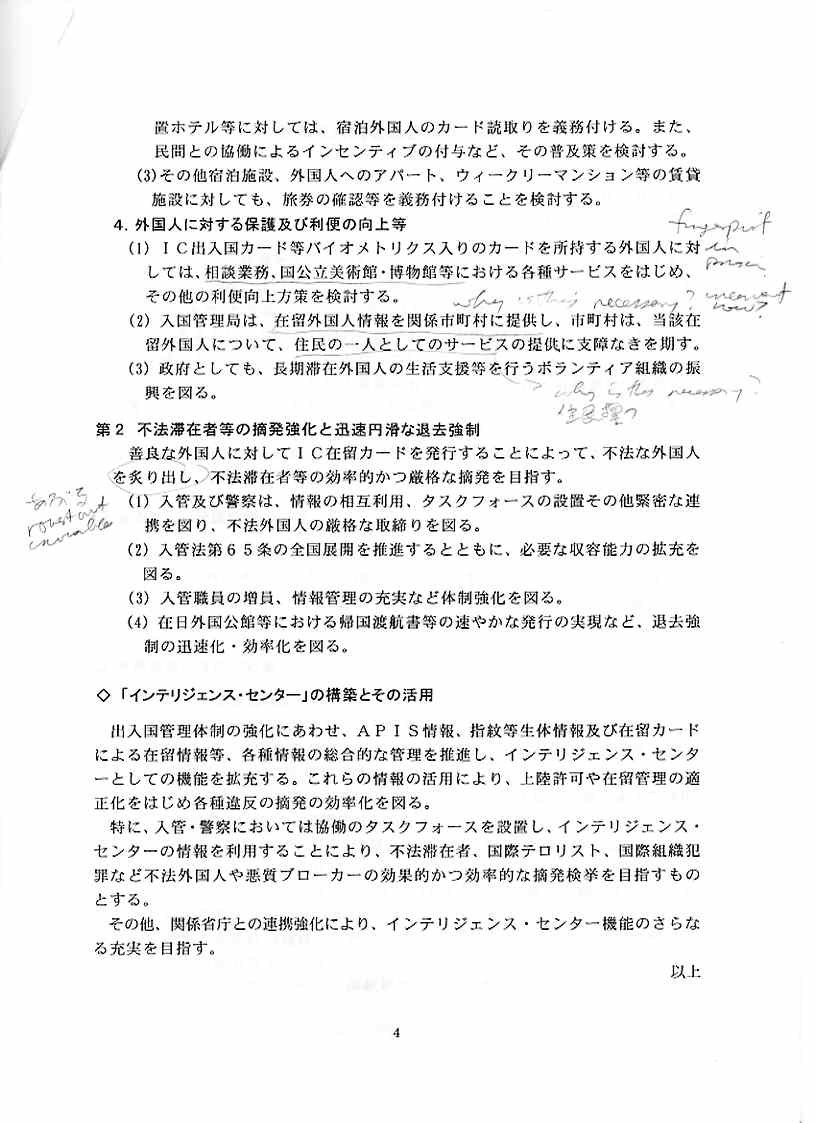 置ホテル等に対しては、宿泊外国人のカード読取りを義務付ける。また、
民間との協働によるインセンティブの付与など、その普及策を検討する。
(3)その他宿泊施設、外国人へのアパート、ウィークリーマンション等の賃貸
施設に対しても、旅券の確認等を義務付けることを検討する。
4. 外国人に対する保護及び利便の向上等
fingerprint
(1) IC出入国カード等バイオメトリクス入りのカードを所持する外国人に対
しては、相談業務、国公立美術館・博物館等における各種サービスをはじめ、
その他の利便向上方策を検討する。
why is this necessary?
now?
(2) 入国管理局は、在留外国人情報を関係市町村に提供し、市町村は、当該在
留外国人について、住民の一人としてのサービスの提供に支障なきを期す。
(3) 政府としても、長期滞在外国人の生活支援等を行うボランティア組織の振
興を図る。
why is this necessary?
第2 不法滞在者等の摘発強化と迅速円滑な退去強制
善良な外国人に対してIC在留カードを発行することによって、不法な外国人
を炙り出し、不法滞在者等の効率的かつ厳格な摘発を目指す。
あぶる
(1) 入管及び警察は、情報の相互利用、タスクフォースの設置その他緊密な連
携を図り、不法外国人の厳格な取締りを図る。
(2) 入管法第65条の全国展開を推進するとともに、必要な収容能力の拡充を
図る。
(3) 入管職員の増員、情報管理の充実など体制強化を図る。
(4) 在日外国公館等における帰国渡航書等の速やかな発行の実現など、退去強
制の迅速化・効率化を図る。
◇「インテリジェンス・センター」の構築とその活用
出入国管理体制の強化にあわせ、APIS情報、指紋等生体情報及び在留カード
による在留情報等、各種情報の総合的な管理を推進し、インテリジェンス・センタ
ーとしての機能を拡充する。これらの情報の活用により、上陸許可や在留管理の適
正化をはじめ各種違反の摘発の効率化を図る。
特に、入管・警察においては協働のタスクフォースを設置し、インテリジェンス・
センターの情報を利用することにより、不法滞在者、国際テロリスト、国際組織犯
罪など不法外国人や悪質ブローカーの効果的かつ効率的な摘発検挙を目指すもの
とする。
その他、関係省庁との連携強化により、インテリジェンス・センター機能のさらな
る充実を目指す。
以上
4